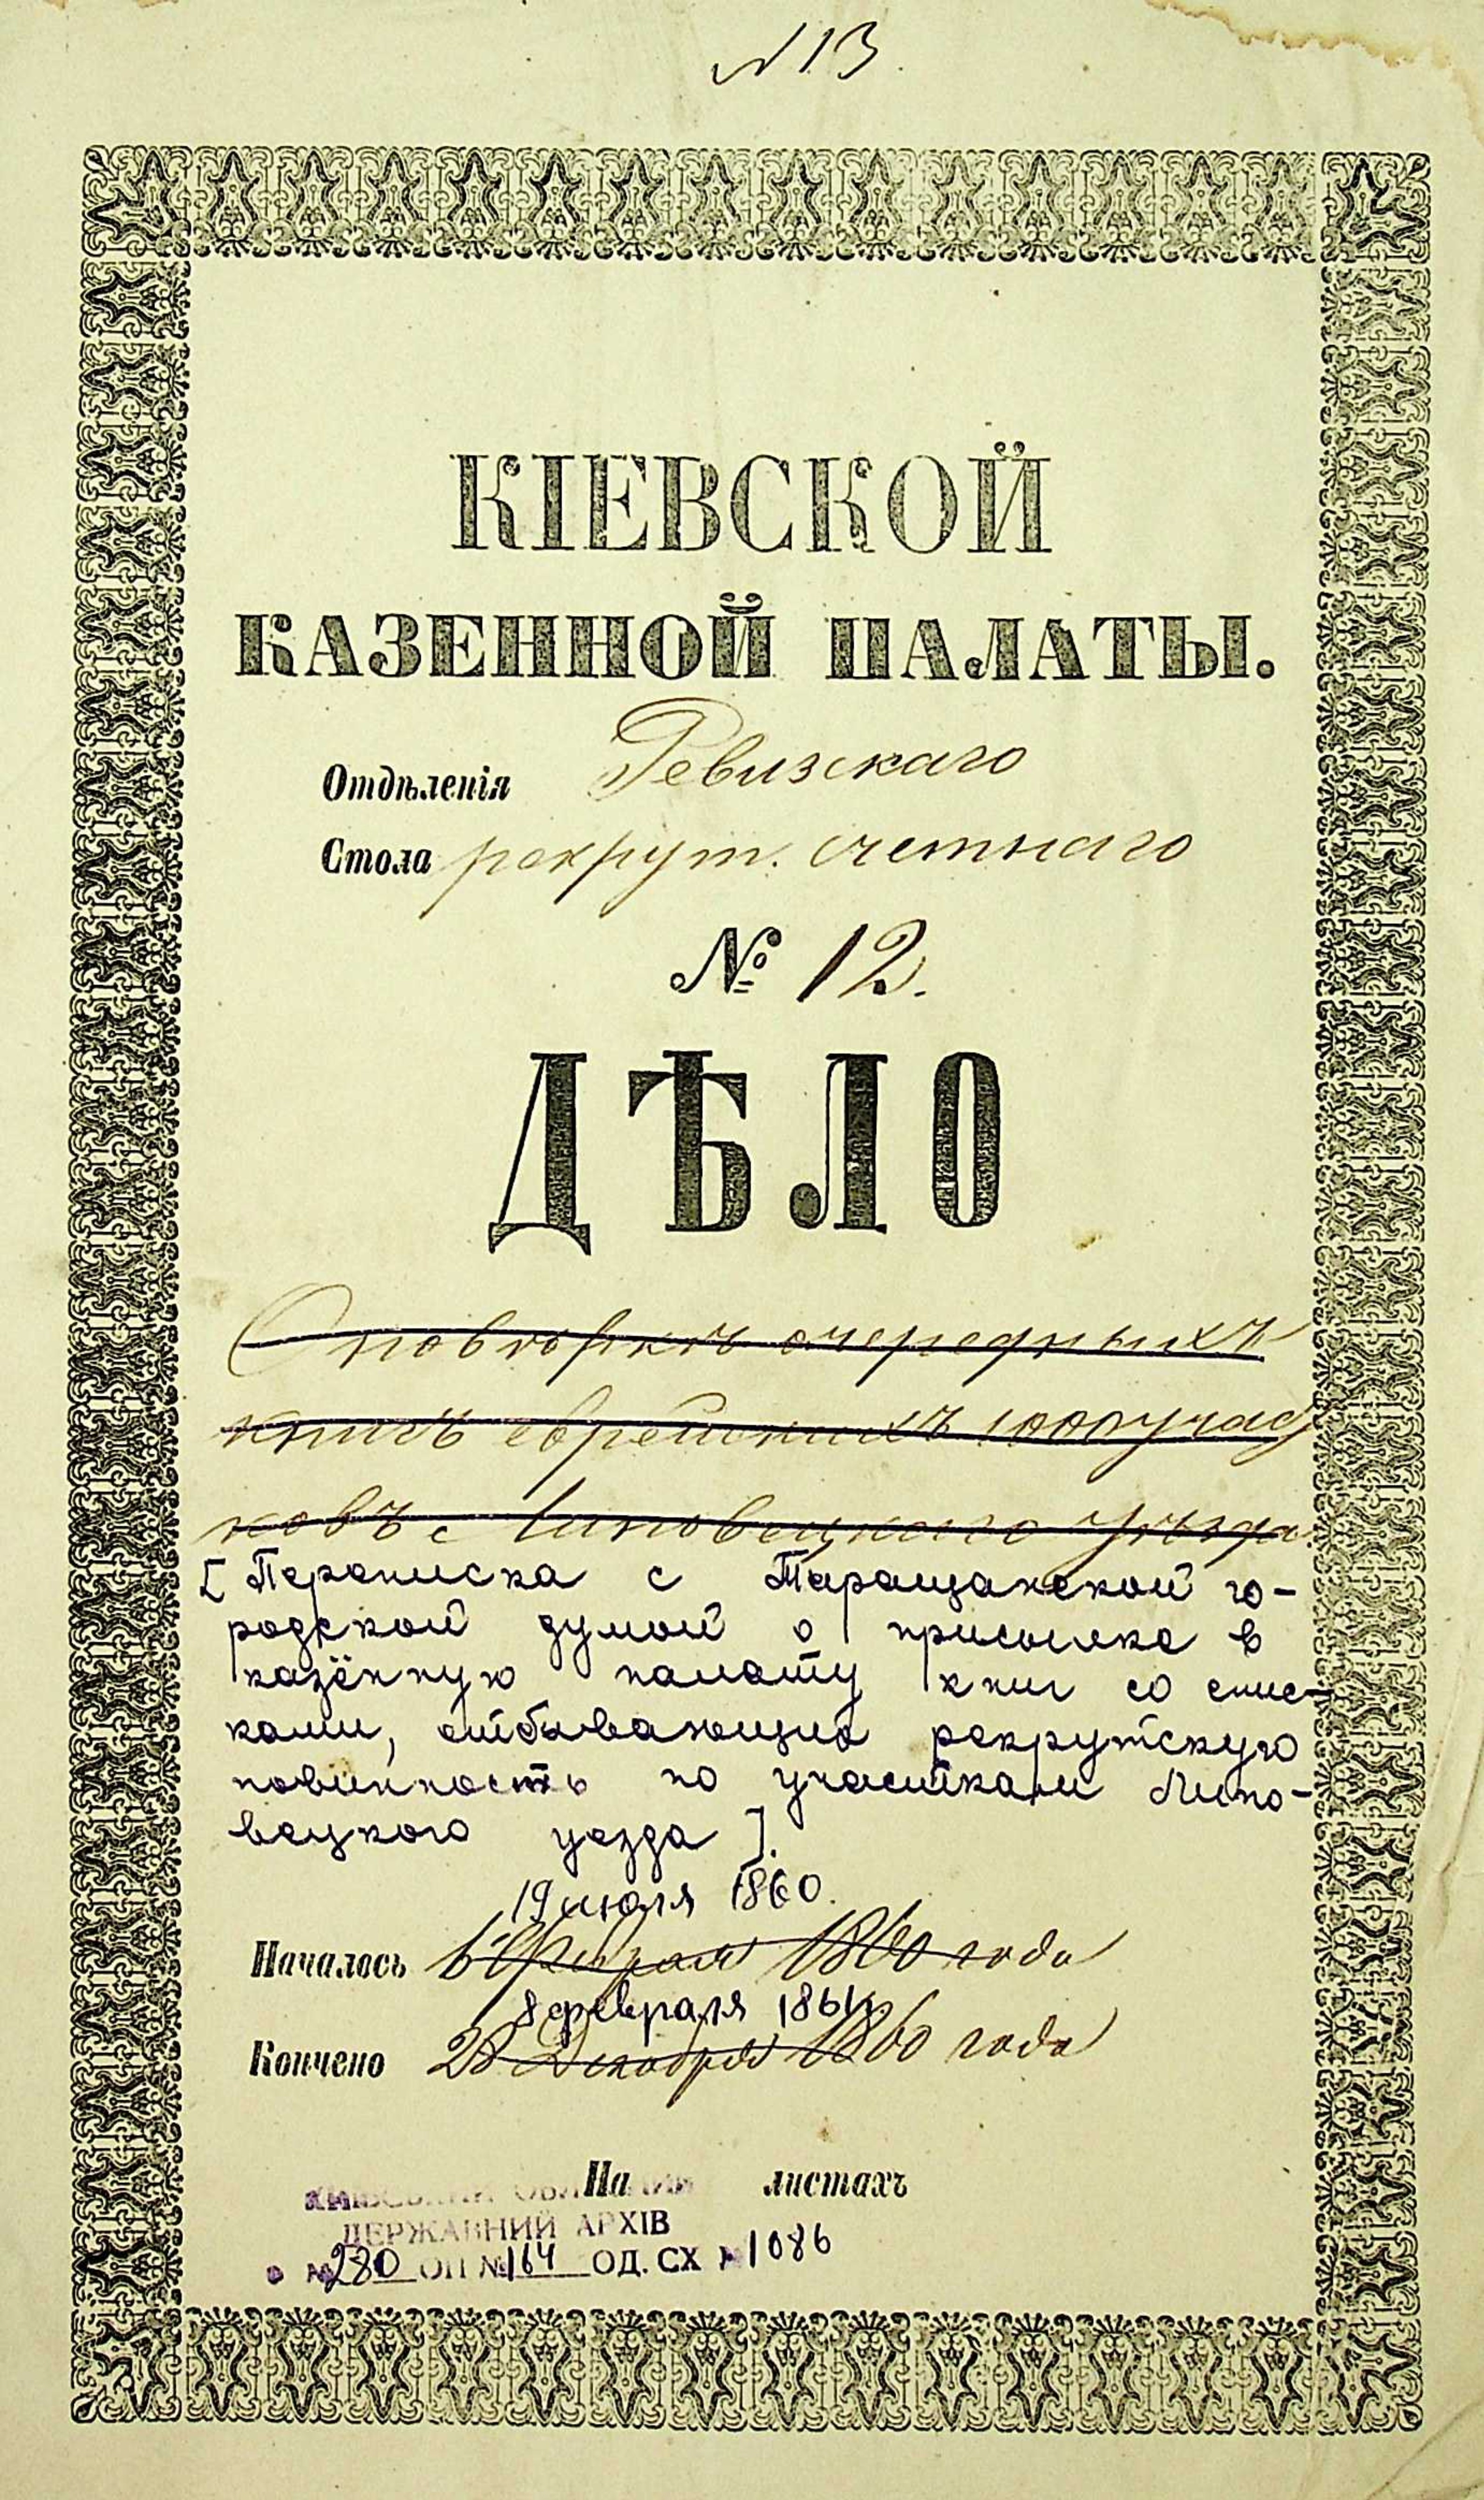 № 13.
КІЕВСКОЙ
КАЗЕННОЙ ПАЛАТЫ.
Отдѣленія Ревизскаго
Стола рекрут. счетнаго
№ 12.
ДѢЛО
О повѣркѣ очередныхъ
книгъ еврейскихъ 1000 участ
ковъ Липовецкаго уѣзда.
[Переписка с Таращанской го-
родской думой о присылке в
казённую палату книг со спис-
ками, отбывающих рекрутскую
повинность по участкам Липо-
вецкого уезда].
19 июля 1860.
Началось 1860 года
8 февраля 1861
Кончено 28 Декабря 1860 года
На листахъ
КИЇВСЬКИЙ ОБЛАСНИЙ
ДЕРЖАВНИЙ АРХІВ
Ф № 280 ОП № 164 ОД. СХ № 1086